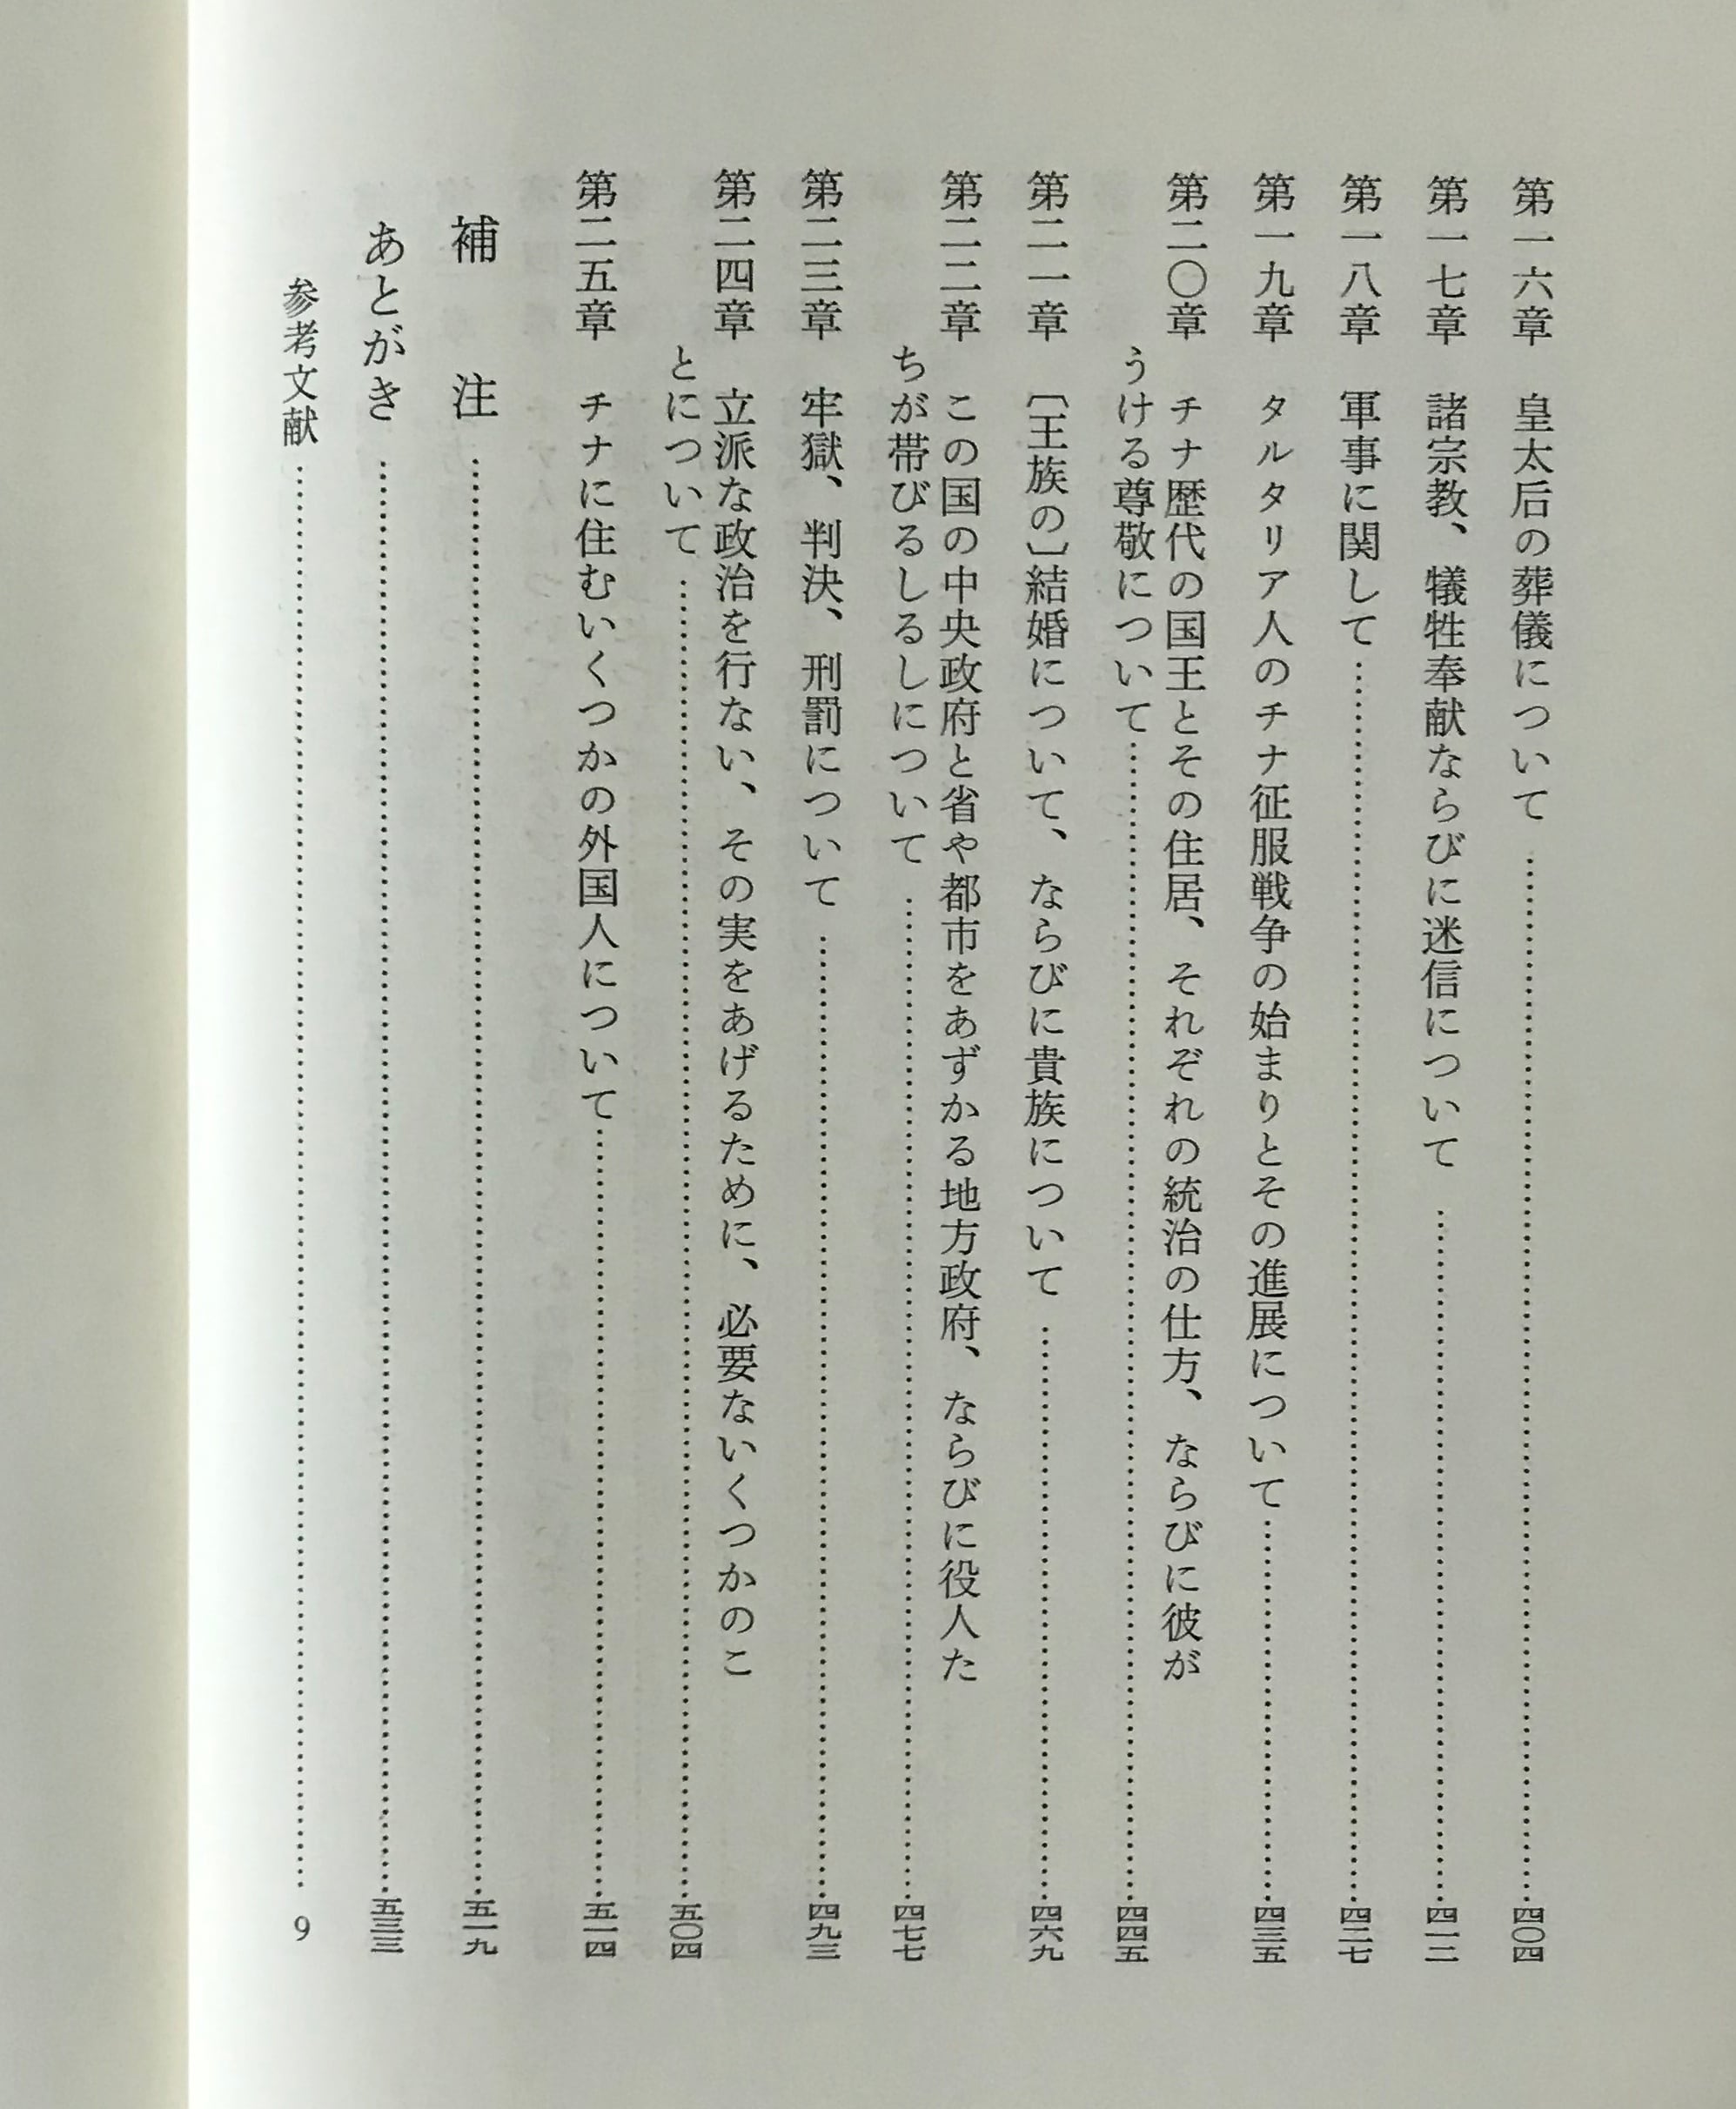 第一六章　皇太后の葬儀について……四〇四
第一七章　諸宗教、犠牲奉献ならびに迷信について……四一二
第一八章　軍事に関して……四二七
第一九章　タルタリア人のチナ征服戦争の始まりとその進展について……四三五
第二〇章　チナ歴代の国王とその住居、それぞれの統治の仕方、ならびに彼が
うける尊敬について……四四五
第二一章　〔王族の〕結婚について、ならびに貴族について……四六九
第二二章　この国の中央政府と省や都市をあずかる地方政府、ならびに役人た
ちが帯びるしるしについて……四七七
第二三章　牢獄、判決、刑罰について……四九三
第二四章　立派な政治を行ない、その実をあげるために、必要ないくつかのこ
とについて……五〇四
第二五章　チナに住むいくつかの外国人について……五一四
補　注……五一九
あとがき……五三三
参考文献……9